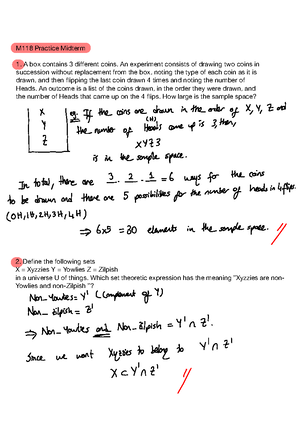 M118 Practice Midterm
1. A box contains 3 different coins. An experiment consists of drawing two coins in
succession without replacement from the box, noting the type of each coin as it is
drawn, and then flipping the last coin drawn 4 times and noting the number of
Heads. An outcome is a list of the coins drawn, in the order they were drawn, and
the number of Heads that came up on the 4 flips. How large is the sample space?
X
Y
Z
eg. If the coins are drawn in the order of X, Y, Z and
(H)
the number of Heads came up is 3, then,
XYZ3
is in the sample space.
In total, there are 3 . 2 . 1 = 6 ways for the coins
to be drawn and there are 5 possibilities for the number of heads in 4 flips.
(0H, 1H, 2H, 3H, 4H)
⇒ 6x5 = 30 elements in the sample space.
2. Define the following sets
X = Xyzzies Y = Yowlies Z = Zilpish
in a universe U of things. Which set theoretic expression has the meaning "Xyzzies are non-
Yowlies and non-Zilpish "?
Non-Yowlies = Y' (Component of Y)
Non-Zilpish = Z'
⇒ Non-Yowlies and Non-Zilpish = Y' ∩ Z'.
Since we want Xyzzies to belong to Y' ∩ Z'
X ⊂ Y' ∩ Z'